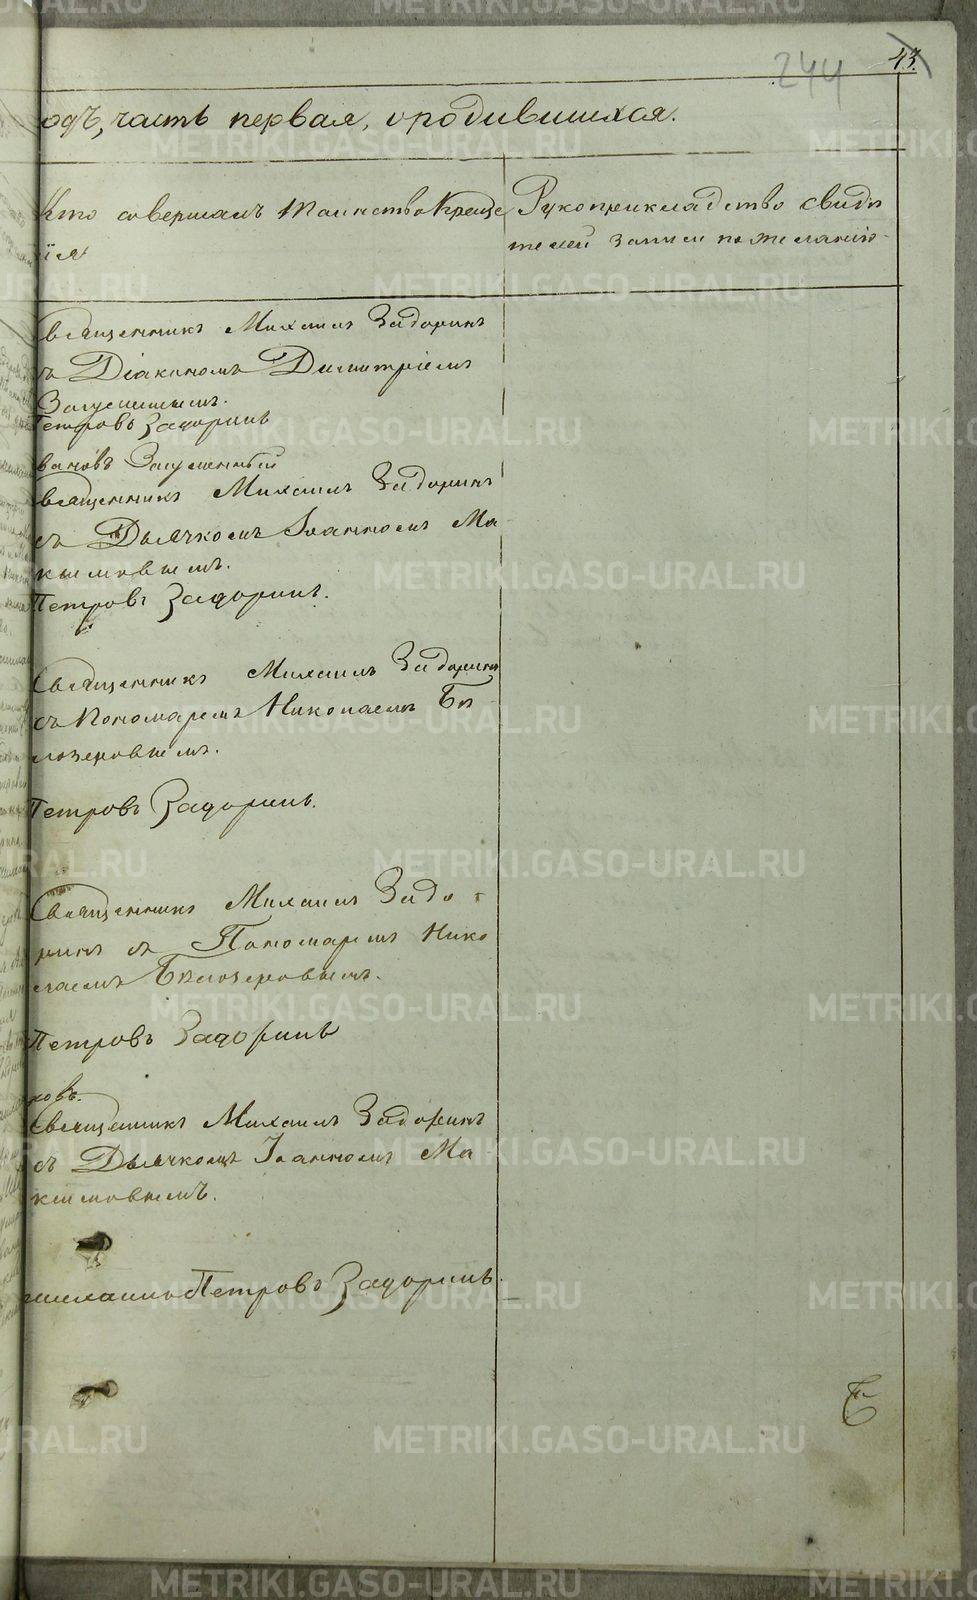 244
43.
одъ, часть первая, о родившихся.
Кто совершалъ таинство Креще
нія
Рукоприкладство свидѣ
телей записи по желанію
Священникъ Михаилъ Задоринъ
съ Діакономъ Димитріемъ
Загуменнымъ.
Петровъ Задоринъ
вановъ Загуменный
Священникъ Михаилъ Задоринъ
съ Дьячкомъ Іоанномъ Ма
ксимовымъ.
Петровъ Задоринъ.
Священникъ Михаилъ Задоринъ
съ Пономаремъ Николаемъ Бѣ
лозеровымъ.
Петровъ Задоринъ.
Священникъ Михаилъ Задо
ринъ съ Пономаремъ Нико
лаемъ Бѣлозеровымъ.
Петровъ Задоринъ
ковъ.
Священникъ Михаилъ Задоринъ
съ Дьячкомъ Іоанномъ Ма
ксимовымъ.
Петровъ Задоринъ.
METRIKI.GASO-URAL.RU